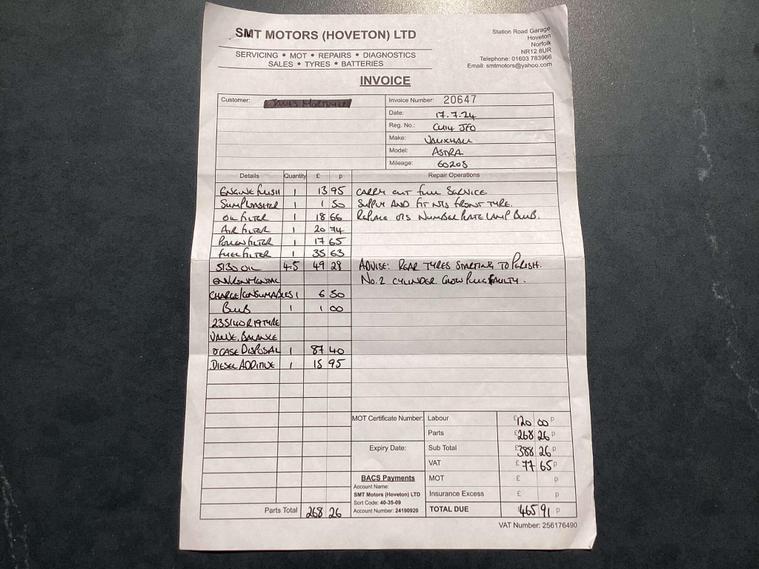 SMT MOTORS (HOVETON) LTD
SERVICING • MOT • REPAIRS • DIAGNOSTICS
SALES • TYRES • BATTERIES
Station Road Garage
Hoveton
Norfolk
NR12 8UR
Telephone: 01603 783966
Email: smtmotors@yahoo.com
INVOICE
Customer:
Invoice Number: 20647
Date: 17.7.24
Reg. No.:
Make: VAUXHALL
Model: ASTRA
Mileage: 60203
Details Quantity £ p Repair Operations
ENGINE FLUSH 1 13 95 CARRY OUT FULL SERVICE
SUMPWASHER 1 1 50 SUPPLY AND FIT N/S FRONT TYRE.
OIL FILTER 1 18 66 REPLACE O/S NUMBER PLATE LAMP BULB.
AIR FILTER 1 20 74
POLLEN FILTER 1 17 65
FUEL FILTER 1 35 63
5/30 OIL 4.5 49 28 ADVISE: REAR TYRES STARTING TO PERISH.
ENVIRONMENTAL No. 2 CYLINDER GLOW PLUG FAULTY.
CHARGE/CONSUMABLES 1 6 50
BULB 1 1 00
235/40 R 19 TYRE
VALVE, BALANCE
+ CASE DISPOSAL 1 87 40
DIESEL ADDITIVE 1 15 95
MOT Certificate Number:
Expiry Date:
BACS Payments
Account Name:
SMT Motors (Hoveton) LTD
Sort Code: 40-35-09
Account Number: 24190920
Labour £120 00 p
Parts £268 26 p
Sub Total £388 26 p
VAT £77 65 p
MOT £ p
Insurance Excess £ p
TOTAL DUE £465 91 p
Parts Total 268 26
VAT Number: 256176490